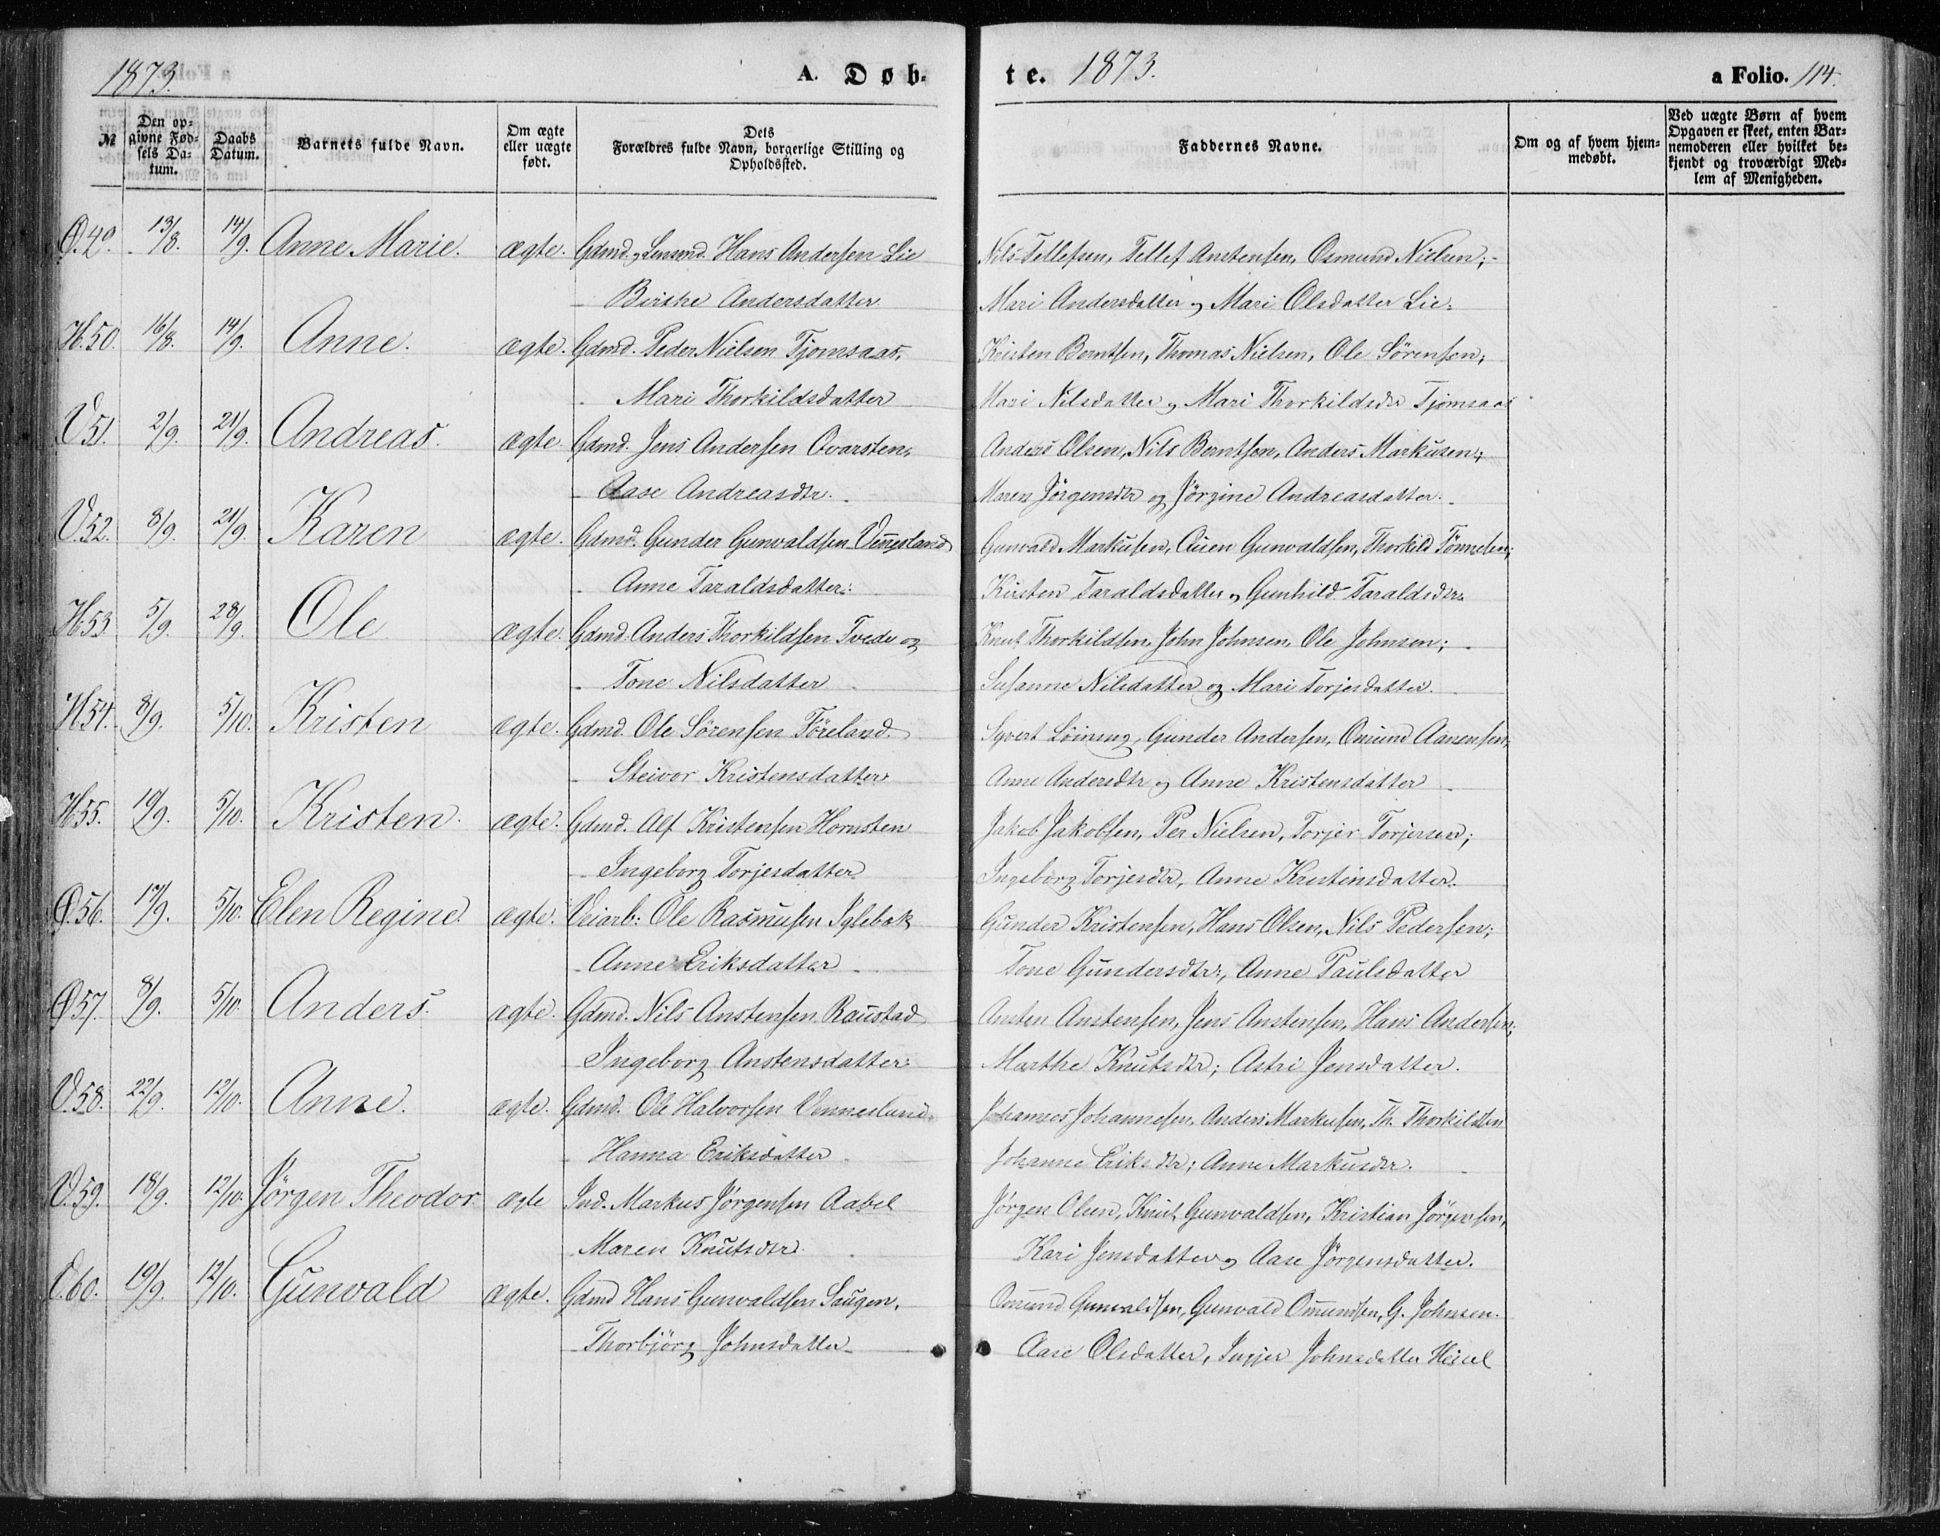 1873. A. Døb- te. 1873. a Folio. 114.
№ Den opgivne Fødsels Datum. Daabs Datum. Barnets fulde Navn. Om ægte eller uægte født. Dets Forældres fulde Navn, borgerlige Stilling og Opholdssted. Faddernes Navne. Om og af hvem hjemmedøbt. Ved uægte Børn af hvem Opgaven er skeet, enten Barnemoderen eller hvilket bekjendt og troværdigt Medlem af Menigheden.
Ø.49. 13/8. 14/9. Anne Marie. ægte. Gdmd. og Lensmd. Hans Andersen Lie Nils Tellefsen, Tellef Anstensen, Osmund Nielsen;
Birthe Andersdatter Mari Andersdatter og Mari Olsdatter Lie.
H.50. 16/8. 14/9. Anne. ægte. Gdmd. Peder Nielsen Tjomsaas, Kristen Berntsen, Thomas Nielsen, Ole Sørensen;
Mari Thorkildsdatter Mari Nilsdatter og Mari Thorkildsdtr Tjomsaas
V.51. 2/9. 21/9. Andreas. ægte. Gdmd. Jens Andersen Ovarsten, Anders Olsen, Nils Berntsen, Anders Markusen;
Aase Andreasdtr. Maren Jørgensdtr og Jørgine Andreasdatter.
V.52. 8/9. 21/9. Karen ægte. Gdmd. Gunder Gunvaldsen Vennesland Gunvald Markusen, Auen Gunvaldsen, Thorkild Tønnesen;
Anne Taraldsdatter. Kirsten Taraldsdatter og Gunhild Taraldsdtr.
H.53 5/9. 28/9. Ole ægte. Gdmd. Anders Thorkildsen Tvede og Knut Thorkildsen, John Johnsen, Ole Johnsen;
Tone Nilsdatter Susanne Nilsdatter og Mari Torjesdatter.
H.54. 8/9. 5/10. Kristen ægte. Gdmd. Ole Sørensen Føreland. Syvert Løining, Gunder Andersen, Omund Aanensen,
Steivor Kristensdatter Anne Andersdtr og Anne Kristensdatter
H.55. 10/9. 5/10. Kristen. ægte. Gdmd. Alf Kristensen Hornsten Jakob Jakobsen, Per Nielsen, Torjer Torjersen;
Ingeborg Torjesdatter Ingeborg Torjesdtr, Anne Kristinsdatter.
Ø.56. 17/9. 5/10. Elen Regine. ægte. Veiarb: Ole Rasmusen Iglebæk Gunder Kristensen, Hans Olsen, Nils Pedersen;
Anne Eriksdatter Tone Gundersdtr., Anne Paulsdatter
Ø.57. 8/9. 5/10. Anders. ægte. Gdmd. Nils Anstensen Raustad Ansten Anstensen, Jens Anstensen, Hans Andersen;
Ingeborg Anstensdatter Marthe Knutsdtr; Astri Jensdatter.
V.58. 22/9. 12/10. Anne. ægte. Gdmd. Ole Halvorsen Vennesland. Johannes Johannesen, Anders Markusen, Th. Thorkildsen
Hanna Eriksdatter Johanne Eriksdtr; Anne Markusdtr.
V.59. 18/9. 12/10. Jørgen Theodor. ægte Ind. Markus Jørgensen Aabel Jørgen Olsen, Knut Gunvaldsen, Kristian Jørgensen,
Maren Knutsdtr. Kari Jensdatter og Aase Jørgensdatter.
V.60. 19/9. 12/10. Gunvald ægte. Gdmd Hans Gunvaldsen Saugen. Omund Gunvaldsen, Gunvald Omundsen, G. Johnsen.
Thorbjørg Johnsdatter Aase Olsdatter, Ingjer Johnsdatter Heisel